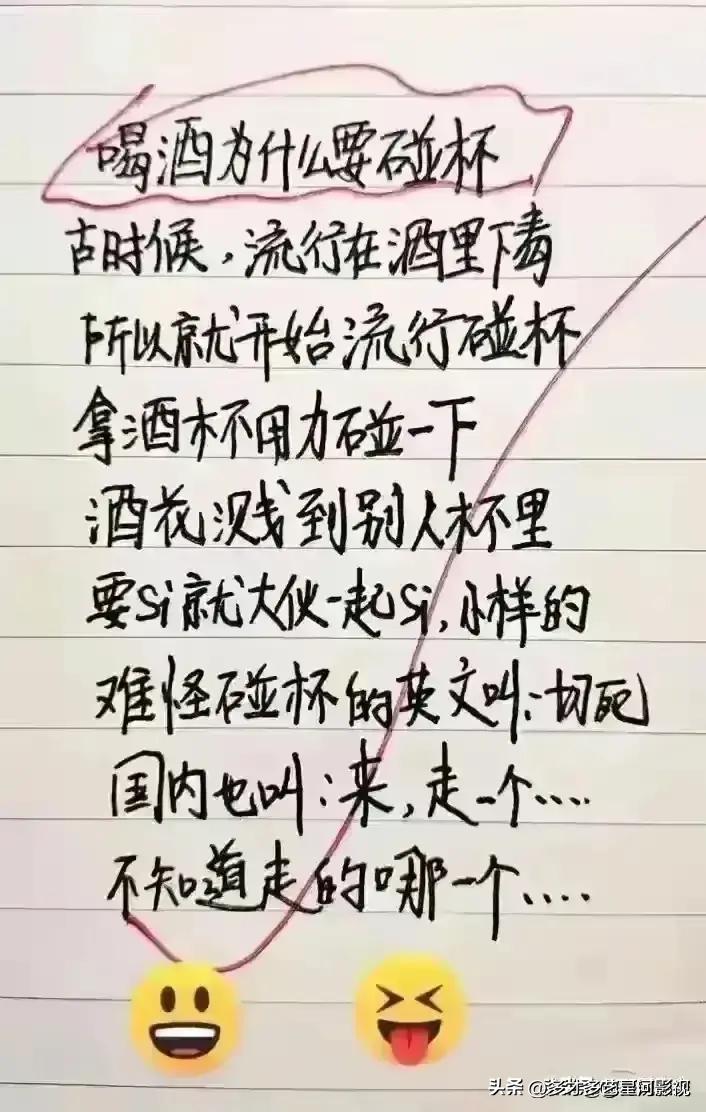 喝酒为什么要碰杯
古时候，流行在酒里下毒
所以就开始流行碰杯
拿酒杯用力碰一下
酒花溅到别人杯里
要Si就大伙一起Si，小样的
难怪碰杯的英文叫：切死
国内也叫：来，走一个....
不知道走的哪一个....
头条